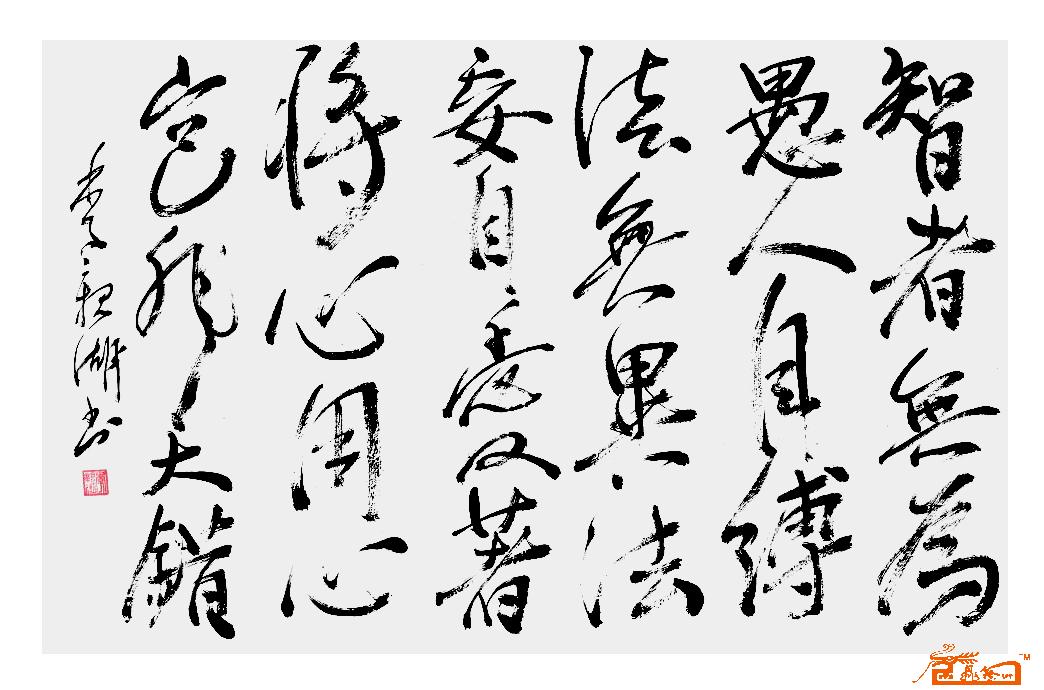 智者無為
愚人自縛
法無異法
妄自愛著
將心用心
豈非大錯
李 湖书
TM